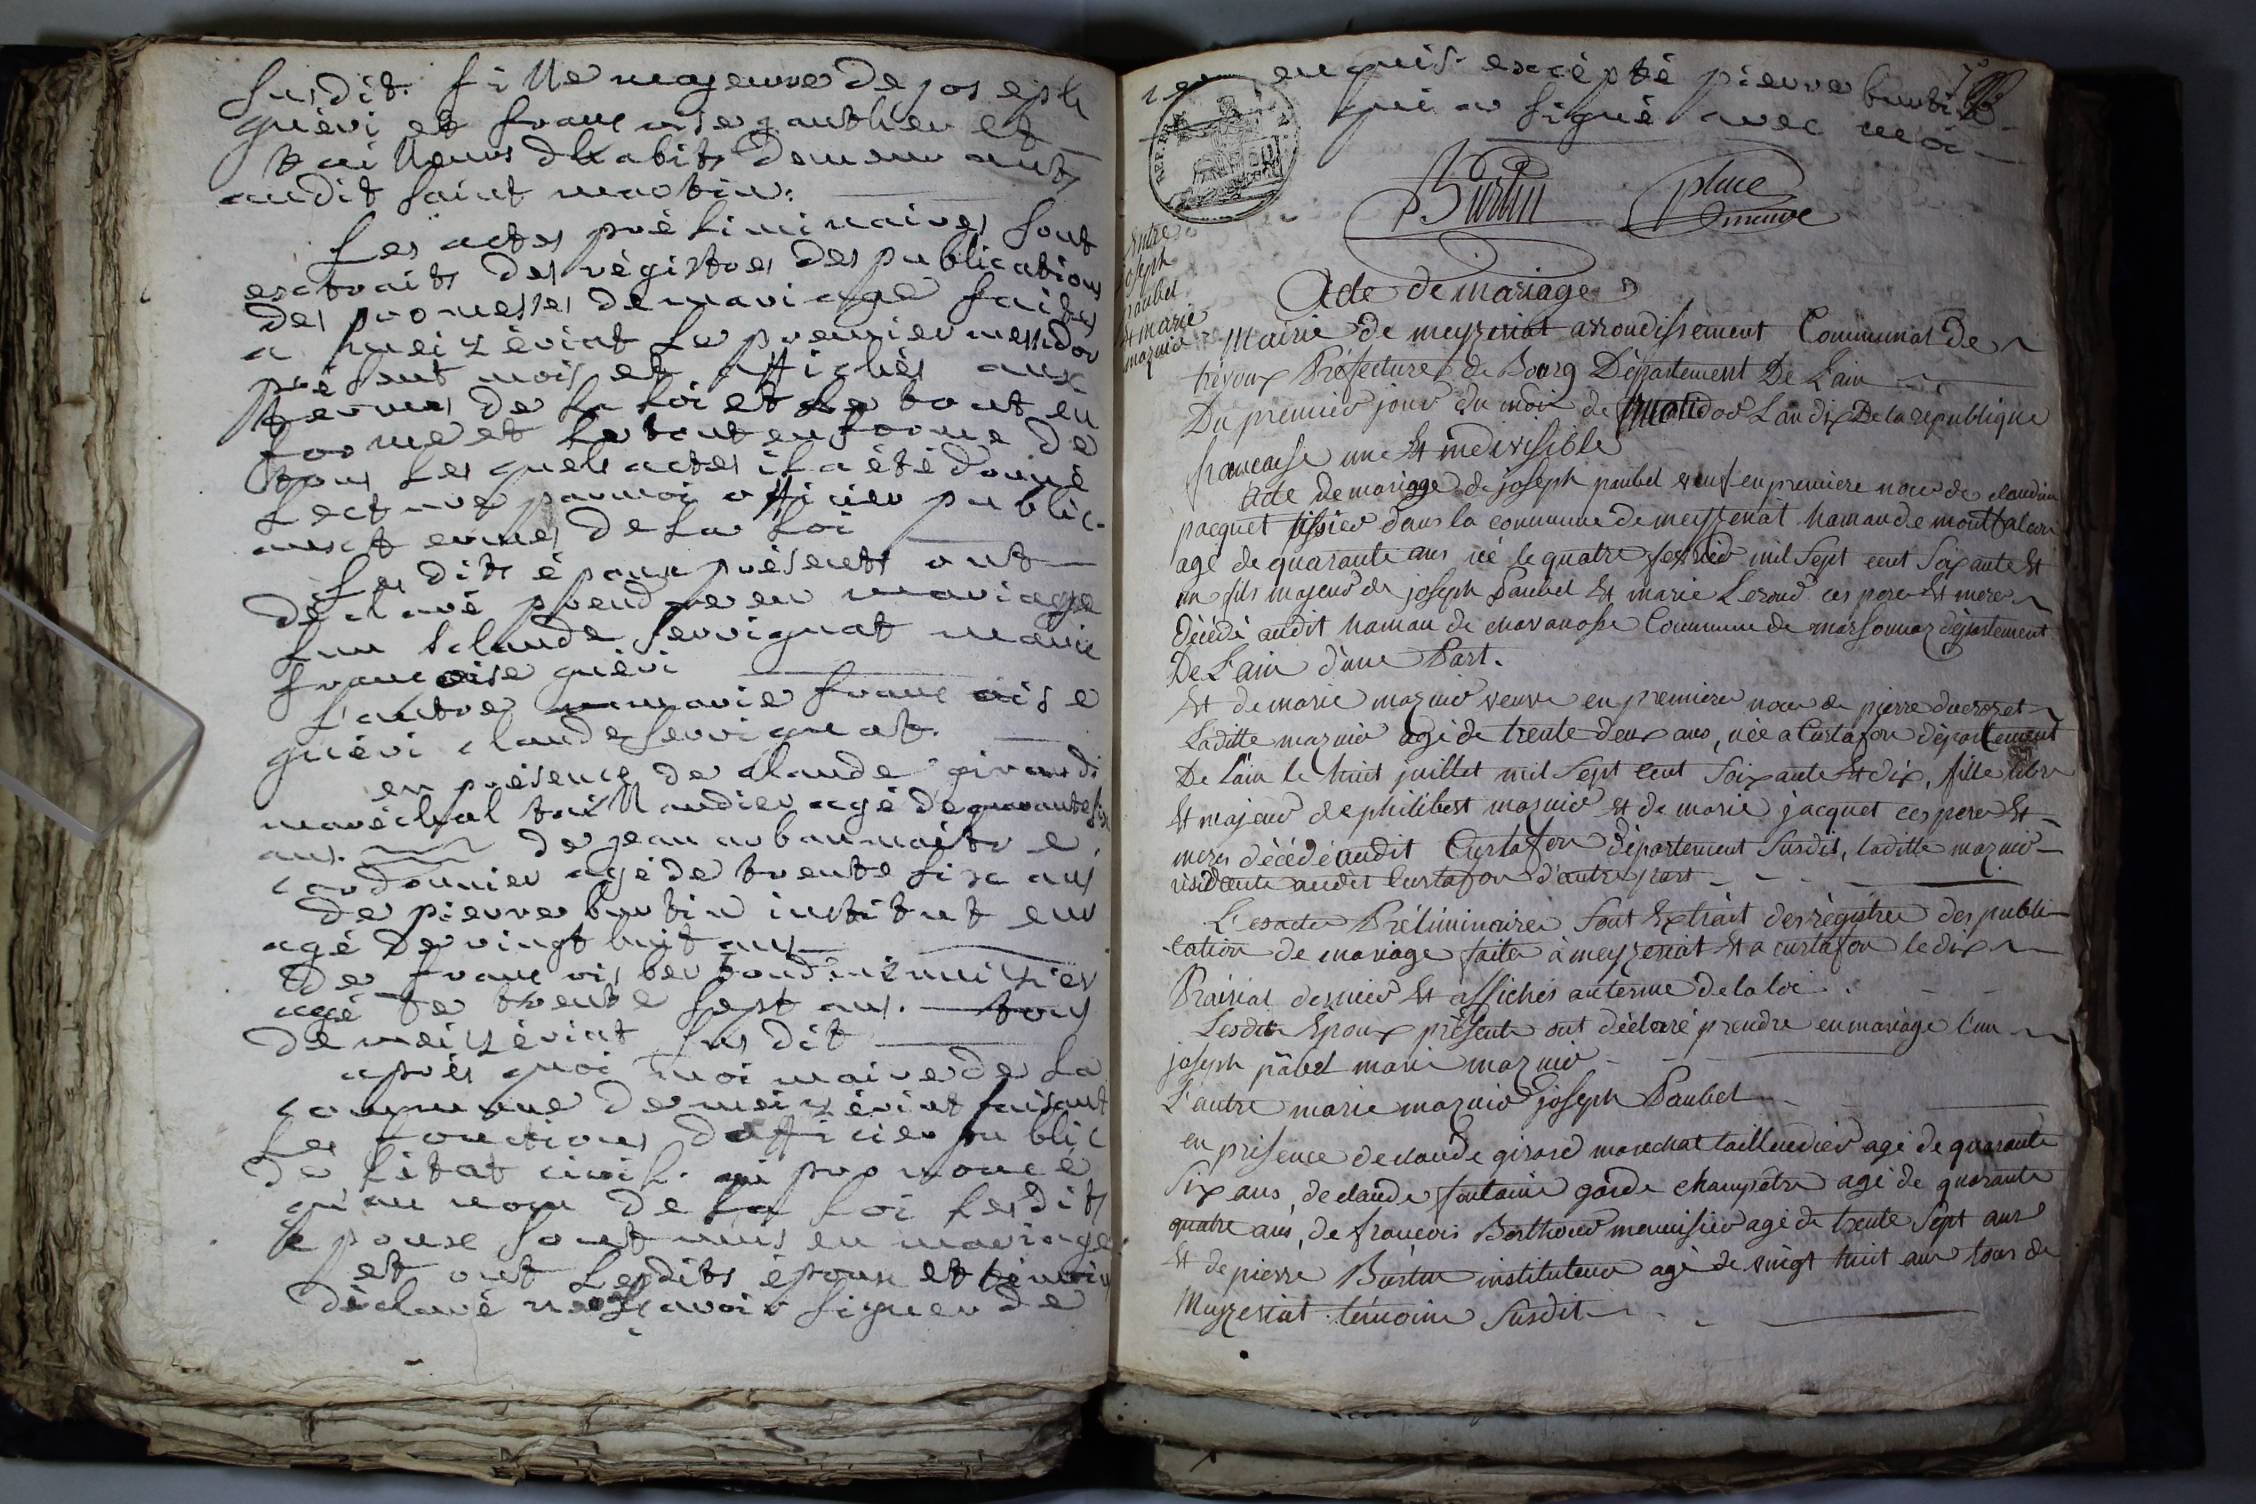 susdit fille majeure de joseph
guéri et françoise gauthier et
tailleurs dhabits demeurants
audit saint martin.
Les actes préliminaires sont
extraits des régistres des publications
des promesses de mariage faites
a meizériat le premier messidor
présent mois et affichés aux
termes de la loi et le tout en
forme et le tout en forme de
tous les quels actes il a été donné
lecture par moi officier public
aux termes de la loi
Les dits époux présents ont
déclaré prendre en mariage
L'un claude servignat marie
françoise guéri
L'autre marie françoise
guéri claude servignat.
en présence de claude girard
maréchal taillandier agé de quarante six
ans. de jean
cordonnier agé de trente six ans
de pierre burtin instituteur
agé de vingt huit ans
de françois menuisier
agé de trente sept ans. tous
de meizériat susdit
après quoi moi maire de la
commune de meizériat faisant
Les fonctions d'officier public
de l'état civil. ai prononcé
qu'au nom de la loi lesdits
époux sont unis en mariage
et ont lesdits époux et témoins
déclaré ne savoir signer de
ce enquis. excépté pierre burtin
qui a signé avec moi
Burtin place
neuve
Entre
joseph
paubel
Et marie
maznio
Acte de mariage
Mairie de meyzeriat arrondissement Communal de
trévoux Préfecture de Bourg Département De L'ain
Du premier jour du mois de Messidor L'an dix De la republique
francaise une Et indivisible
Acte de mariage de joseph paubel veuf en premiere noce de claudine
pacquet tissier dans la commune de meyzeriat hamau de montfalcon
agé de quarante ans né le quatre fevrier mil sept cent soixante Et
un fils majeur de joseph Paubel Et marie Leroud ces pere Et mere
Décédé audit hamau de chavanosse Commune de marsonnaz département
De L'ain d'une Part.
Et de marie maznio veuve en premiere noce de pierre ducrozet
Laditte maznio agé de trente deux ans, née a Curtafon département
De L'ain le huit juillet mil sept cent soixante Et dix, fille libre
Et majeur de philibert maznio Et de marie jacquet ces pere Et
meres décédé audit Curtafon département susdit, laditte maznio
residente audit Curtafon d'autre part
L'es actes Préliminaires sont Extrait des régistres des publi-
cation de mariage faite à meyzeriat Et a curtafon le dix
Prairial dernier Et affichés au terme de la loi.
Lesdits Epoux présents ont déclaré prendre en mariage l'un
joseph pâbel marie maznio
L'autre marie maznio joseph Paubel
en présence de claude girard marechal taillendier agé de quarante
six ans, de claude fontaine garde champêtre agé de quarante
quatre ans, de francois Berthoud menuisier agé de trente sept ans
Et de pierre Burtin instituteur agé de vingt huit ans tous de
Meyzeriat témoins susdit